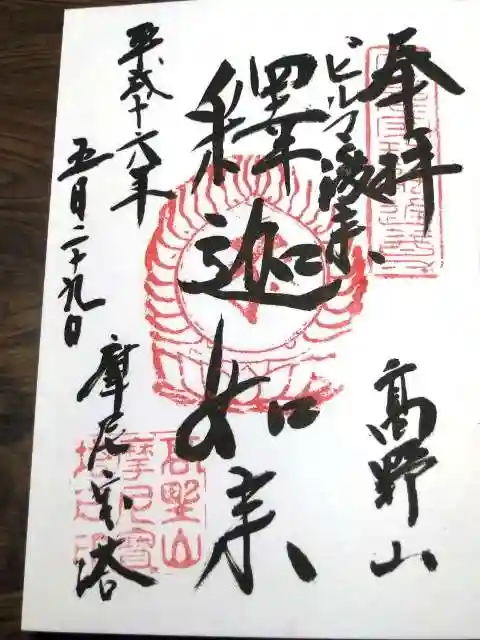 奉拝
高野山
ビルマ渡来
釋迦如来
平成十六年
五月二十九日
摩尼宝塔
高野山
摩尼寶
塔之印